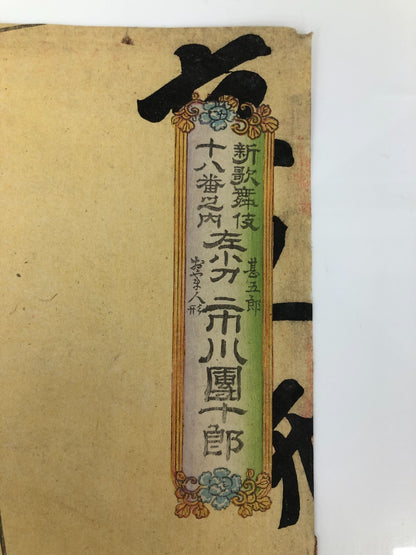 新歌舞伎
十八番之内
左小刀
甚五郎
おやま人形
市川團十郎